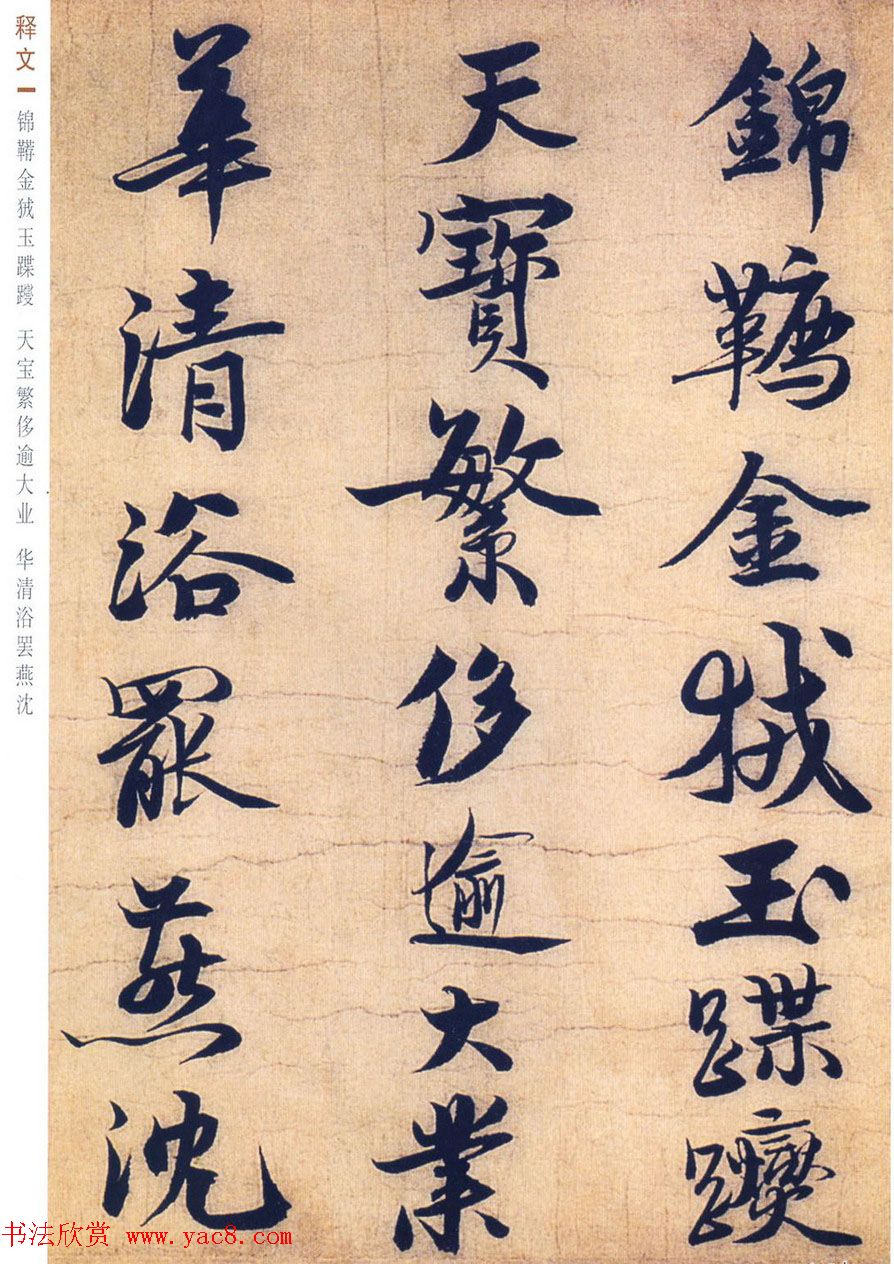 錦韉金狨玉蹀躞
天寶繁侈逾大業
華清浴罷燕沈
释文
锦鞯金狨玉蹀躞 天宝繁侈逾大业 华清浴罢燕沈
书法欣赏 www.yac8.com